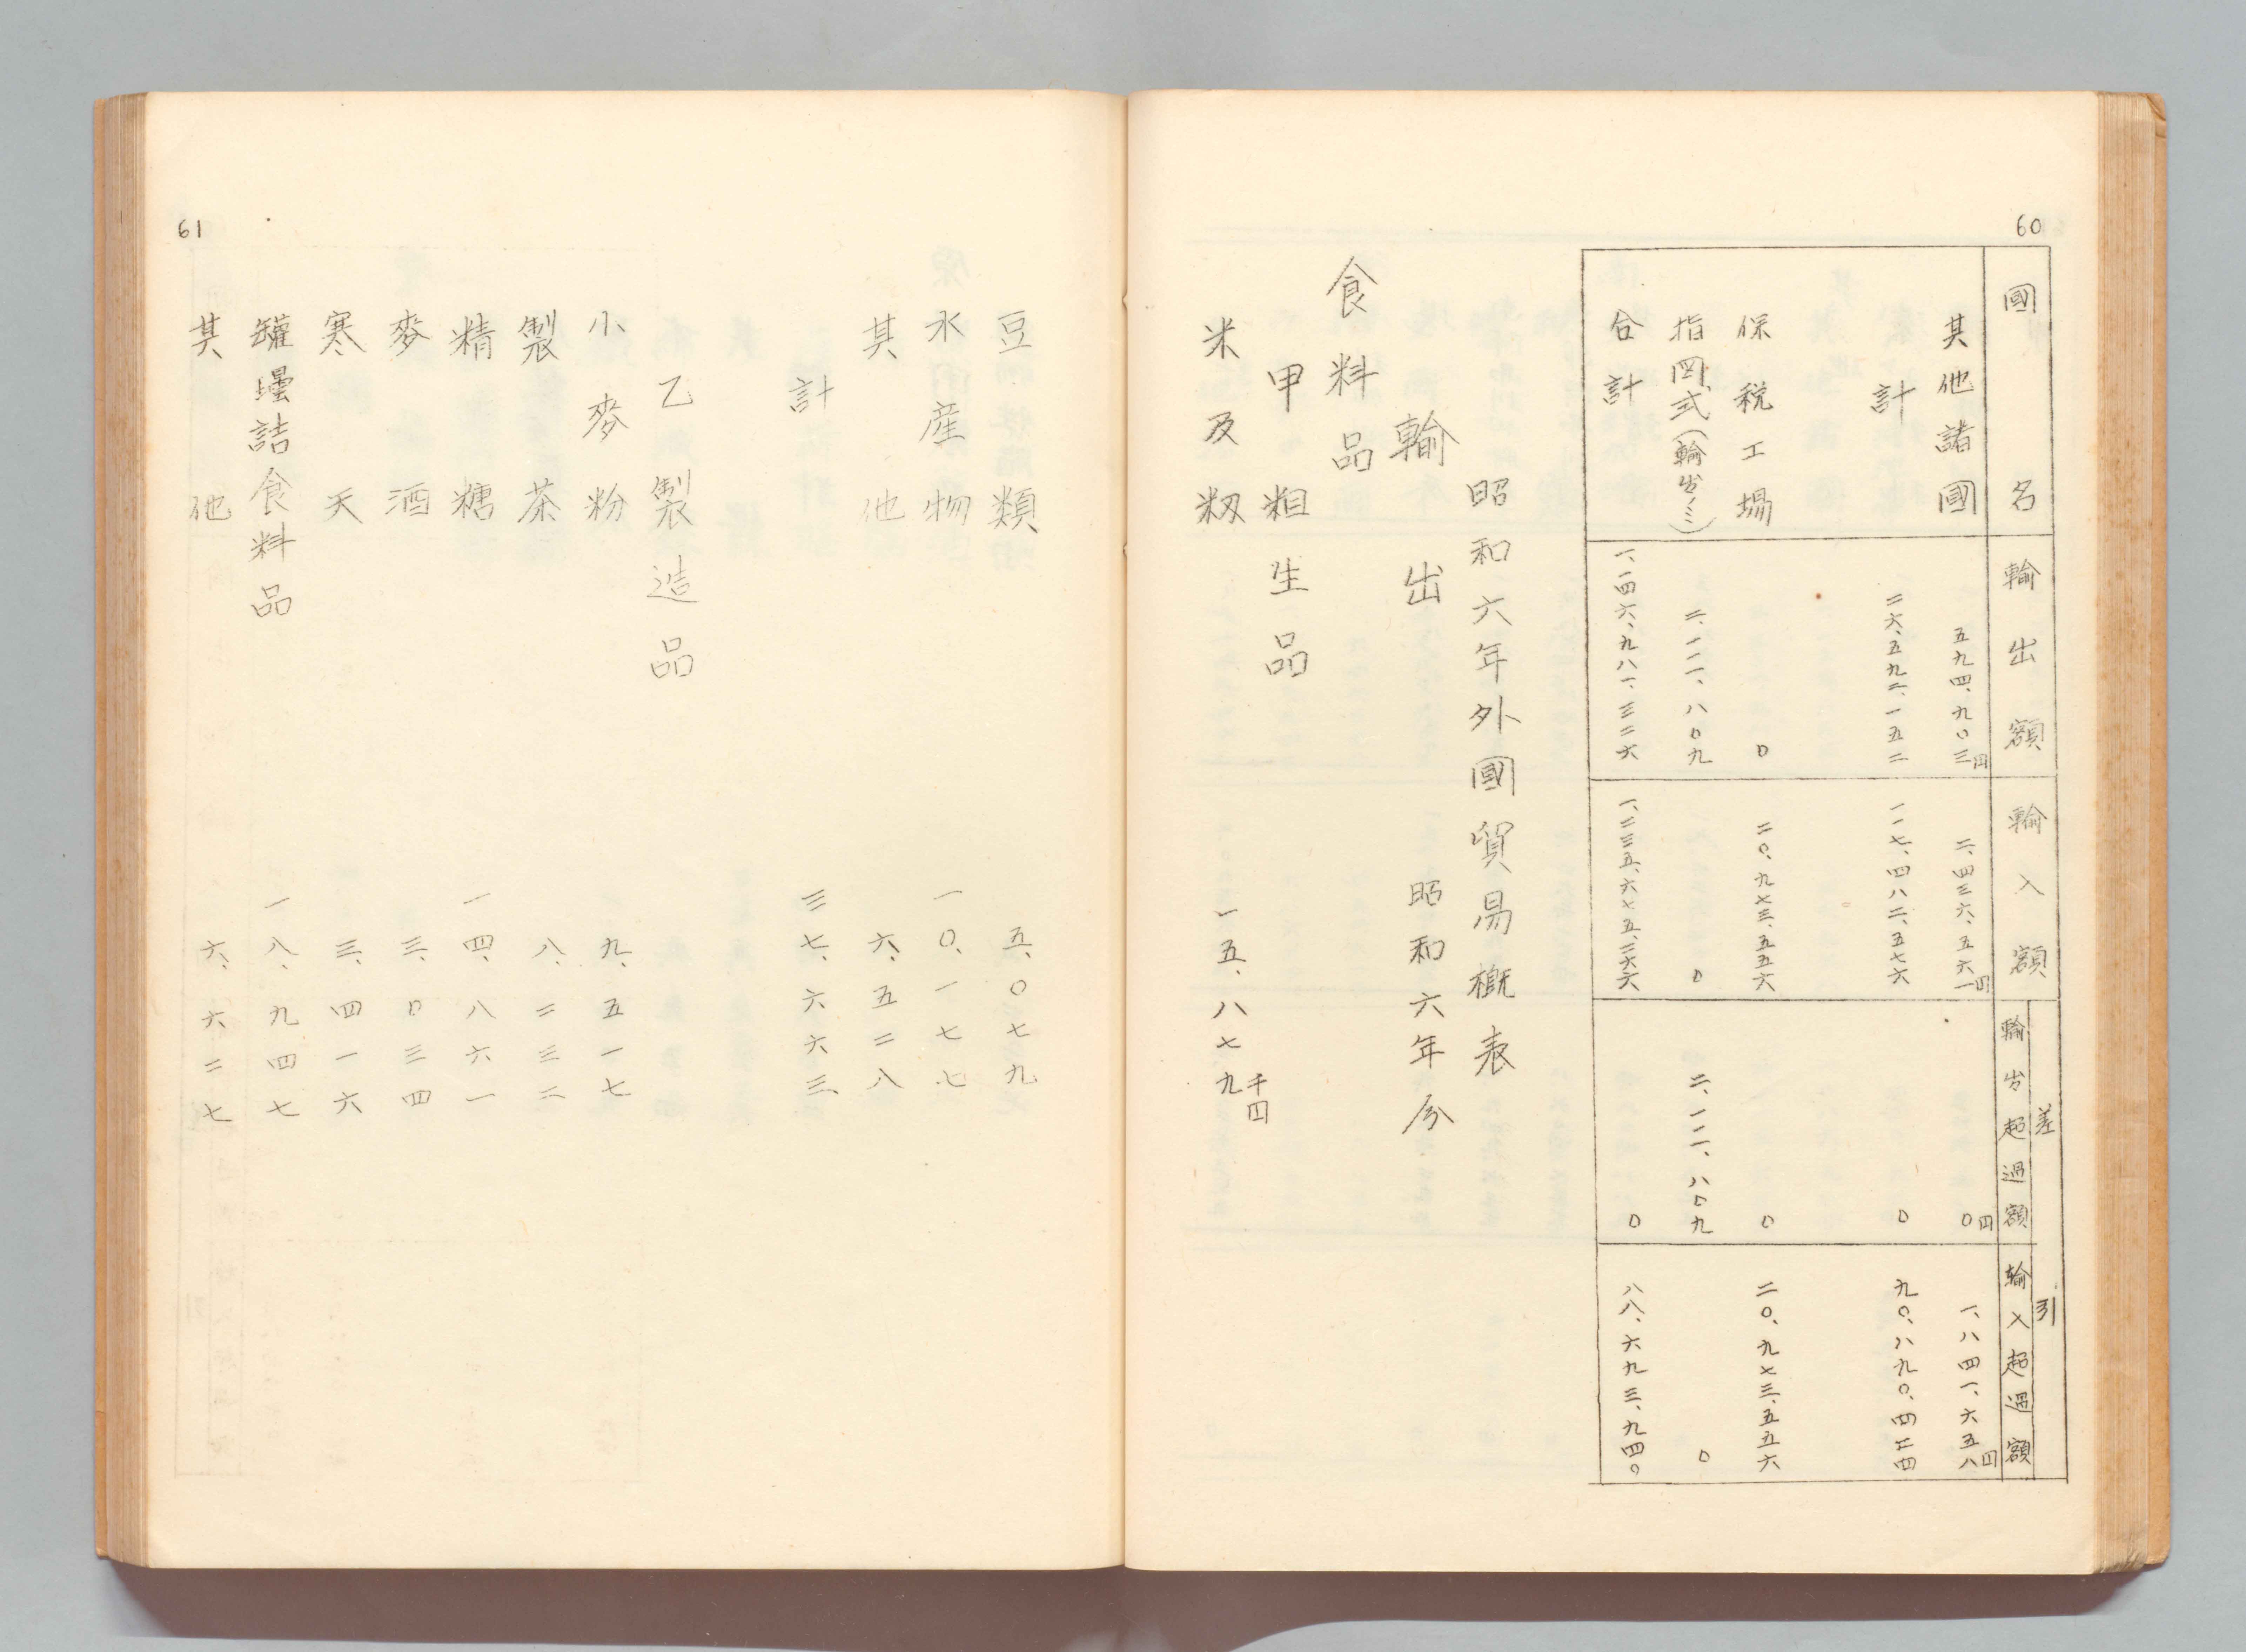 60
國名 輸出額 輸入額 差引 輸出超過額 輸入超過額
其他諸國 五九四、九〇三円 二、四三六、五六一円 〇円 一、八四一、六五八円
計 二六、五九二、一五二 一一七、四八二、五七六 〇 九〇、八九〇、四二四
保税工場 〇 二〇、九七三、五五六 〇 二〇、九七三、五五六
指図式(輸出ノミ) 二、一一一、八〇九 〇 二、一一一、八〇九 〇
合計 一、一四六、九八一、三二六 一、二三五、六七五、二六六 〇 八八、六九三、九四〇
昭和六年外國貿易概表
輸出 昭和六年分
食料品
甲 粗生品
米及籾 一五、八七九千円
61
豆類 五、〇七九
水産物 一〇、一七七
其他 六、五二八
計 三七、六六三
乙 製造品
小麥粉 九、五一七
製茶 八、二三二
精糖 一四、八六一
麥酒 三、〇三四
寒天 三、四一六
罐壜詰食料品 一八、九四七
其他 六、六二七